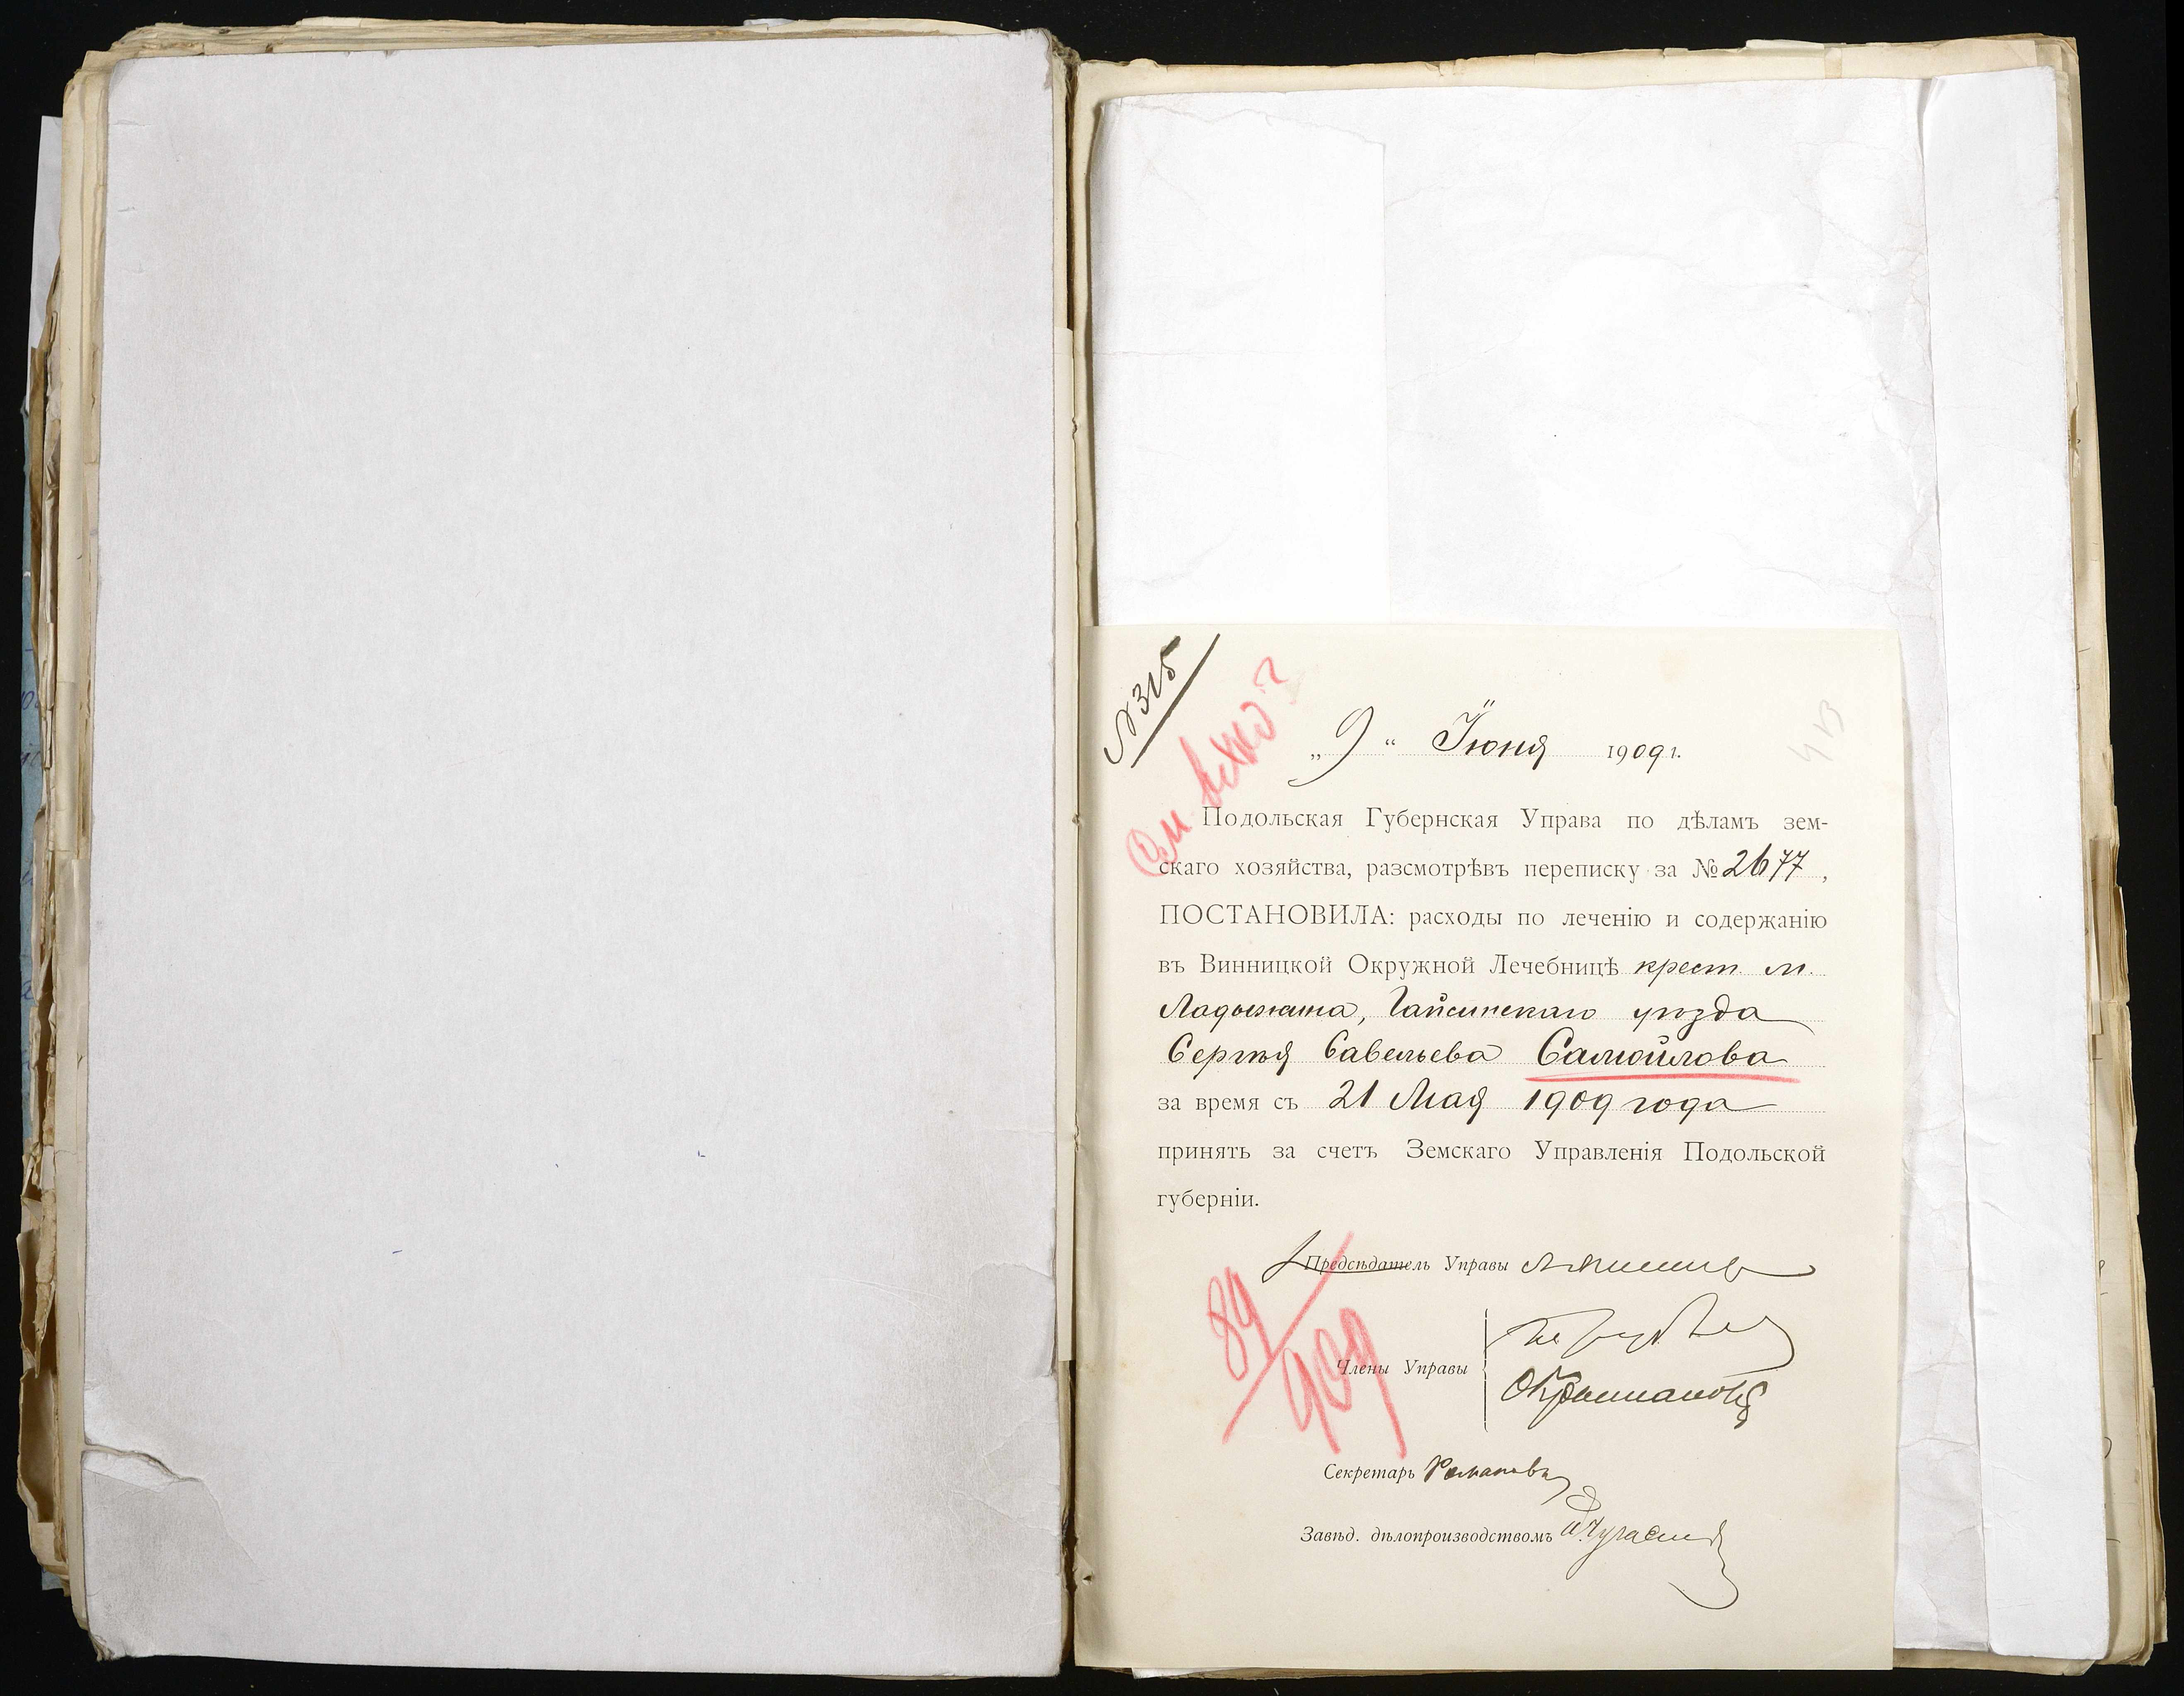 № 315
„9“ Іюня 1909 г.
Подольская Губернская Управа по дѣламъ зем-
скаго хозяйства, разсмотрѣвъ переписку за № 2677,
ПОСТАНОВИЛА: расходы по леченію и содержанію
въ Винницкой Окружной Лечебницѣ крест. м.
Ладыжина, Гайсинскаго уѣзда
Сергѣя Савельева Самойлова
за время съ 21 Мая 1909 года
принять за счетъ Земскаго Управленія Подольской
губерніи.
Предсѣдатель Управы
Члены Управы
89/909
Секретарь Романовъ
Завѣд. дѣлопроизводствомъ